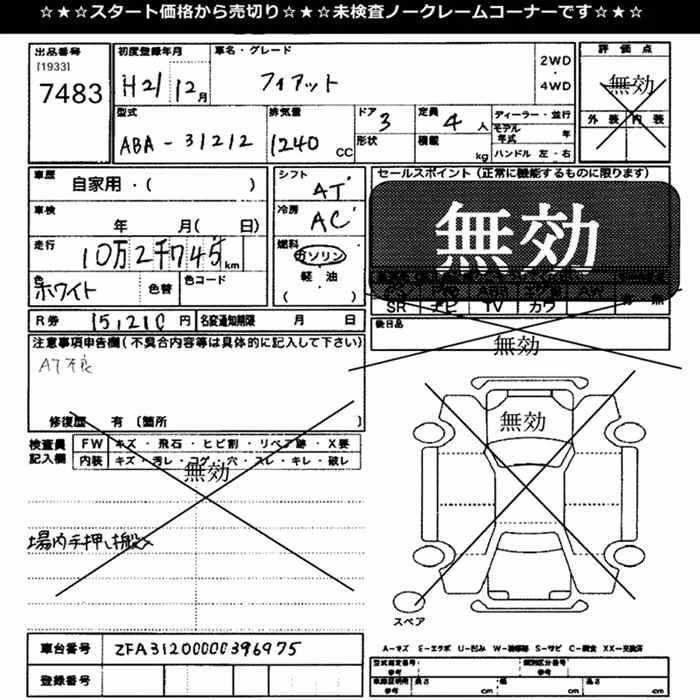 ☆★☆★スタート価格から売切り☆★☆★未検査ノークレームコーナーです☆★☆
出品番号
[1933]
7483
初度登録年月
H21 12月
車名・グレード
フィアット
2WD
・
4WD
評価点
無効
外装 内装
型式
ABA-31212
排気量
1240 CC
ドア 3
形状
定員 4 人
積載 kg
ディーラー・並行
モデル年式 年
ハンドル 左・右
車歴
自家用・( )
車検
年 月( 日)
走行
10万2千745km
色
ホワイト
色替
色コード
シフト
AT
冷房
AC
燃料
ガソリン
軽油
( )
セールスポイント (正常に機能するものに限ります)
無効
SR ナビ TV カワ
後日品
無効
R券 15,210円
名変通知期限 月 日
注意事項申告欄(不具合内容等は具体的に記入して下さい)
AT不良
修復歴 有 〔箇所
検査員
記入欄
FW キズ・飛石・ヒビ割・リペア跡・X要
内装 キズ・汚レ・コゲ・穴・スレ・キレ・破レ
無効
場内手押し搬入
無効
スペア
車台番号 ZFA31200000396975
登録番号
A-キズ E-エクボ U-凹み W-補修跡 S-サビ C-腐食 XX-交換済
型式指定番号
参考
類別区分番号
参考
車庫証明用
参考
長さ cm
幅 cm
高さ cm